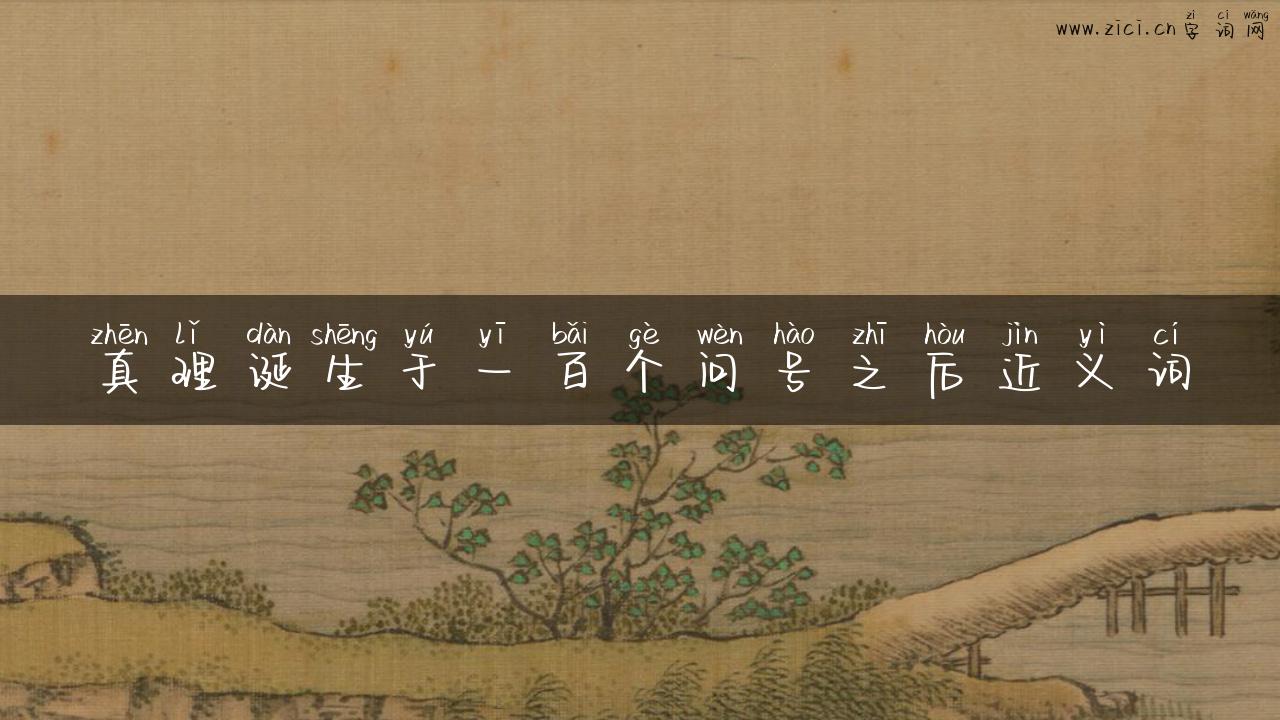 zì cí wǎng
www.zici.cn 字词网
zhēn lǐ dàn shēng yú yī bǎi gè wèn hào zhī hòu jìn yì cí
真理诞生于一百个问号之后近义词